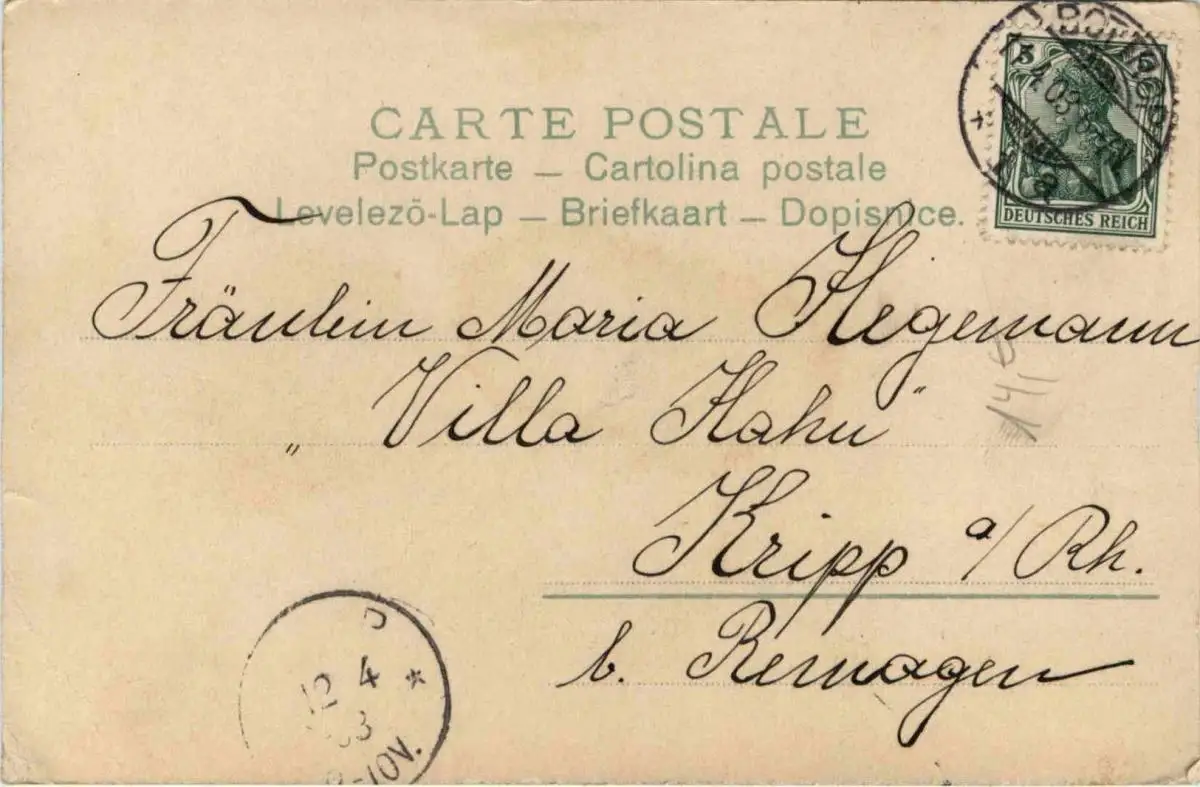 CARTE POSTALE
Postkarte – Cartolina postale
Levelezō-Lap – Briefkaart – Dopisnice.
5
DEUTSCHES REICH
Fräulein Maria Hegemann
„Villa Hahn"
Kripp a/Rh.
b. Remagen
12 4
8-10V.